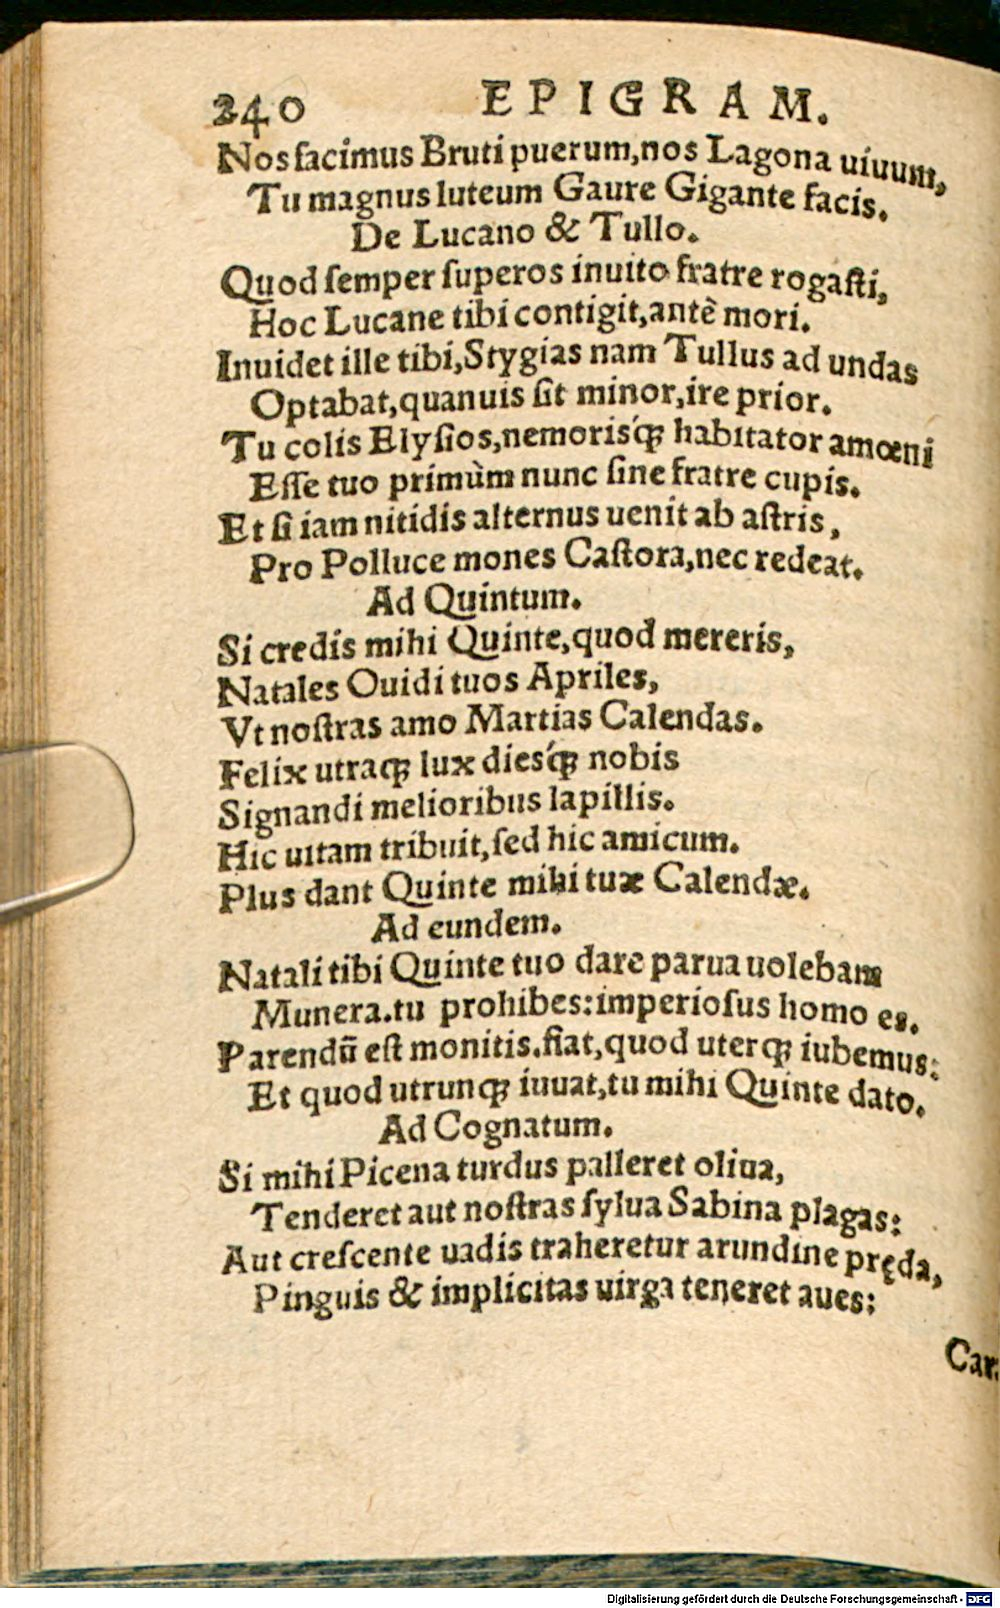 240 EPIGRAM.
Nos facimus Bruti puerum, nos Lagona uiuum,
Tu magnus luteum Gaure Gigante facis.
De Lucano & Tullo.
Quod ſemper ſuperos inuito fratre rogaſti,
Hoc Lucane tibi contigit, antè mori.
Inuidet ille tibi, Stygias nam Tullus ad undas
Optabat, quanuis ſit minor, ire prior.
Tu colis Elyſios, nemorisq́ꝫ habitator amœni
Eſſe tuo primùm nunc ſine fratre cupis.
Et ſi iam nitidis alternus uenit ab aſtris,
Pro Polluce mones Caſtora, nec redeat.
Ad Quintum.
Si credis mihi Quinte, quod mereris,
Natales Ouidi tuos Apriles,
Vt noſtras amo Martias Calendas.
Felix utraqꝫ lux diesq́ꝫ nobis
Signandi melioribus lapillis.
Hic uitam tribuit, ſed hic amicum.
Plus dant Quinte mihi tuæ Calendæ.
Ad eundem.
Natali tibi Quinte tuo dare parua uolebam
Munera. tu prohibes: imperioſus homo es.
Parendū eſt monitis. fiat, quod uterqꝫ iubemus:
Et quod utrunqꝫ iuuat, tu mihi Quinte dato.
Ad Cognatum.
Si mihi Picena turdus palleret oliua,
Tenderet aut noſtras ſylua Sabina plagas:
Aut creſcente uadis traheretur arundine pręda,
Pinguis & implicitas uirga teneret aues:
Car.
Digitalisierung gefördert durch die Deutsche Forschungsgemeinschaft - DFG